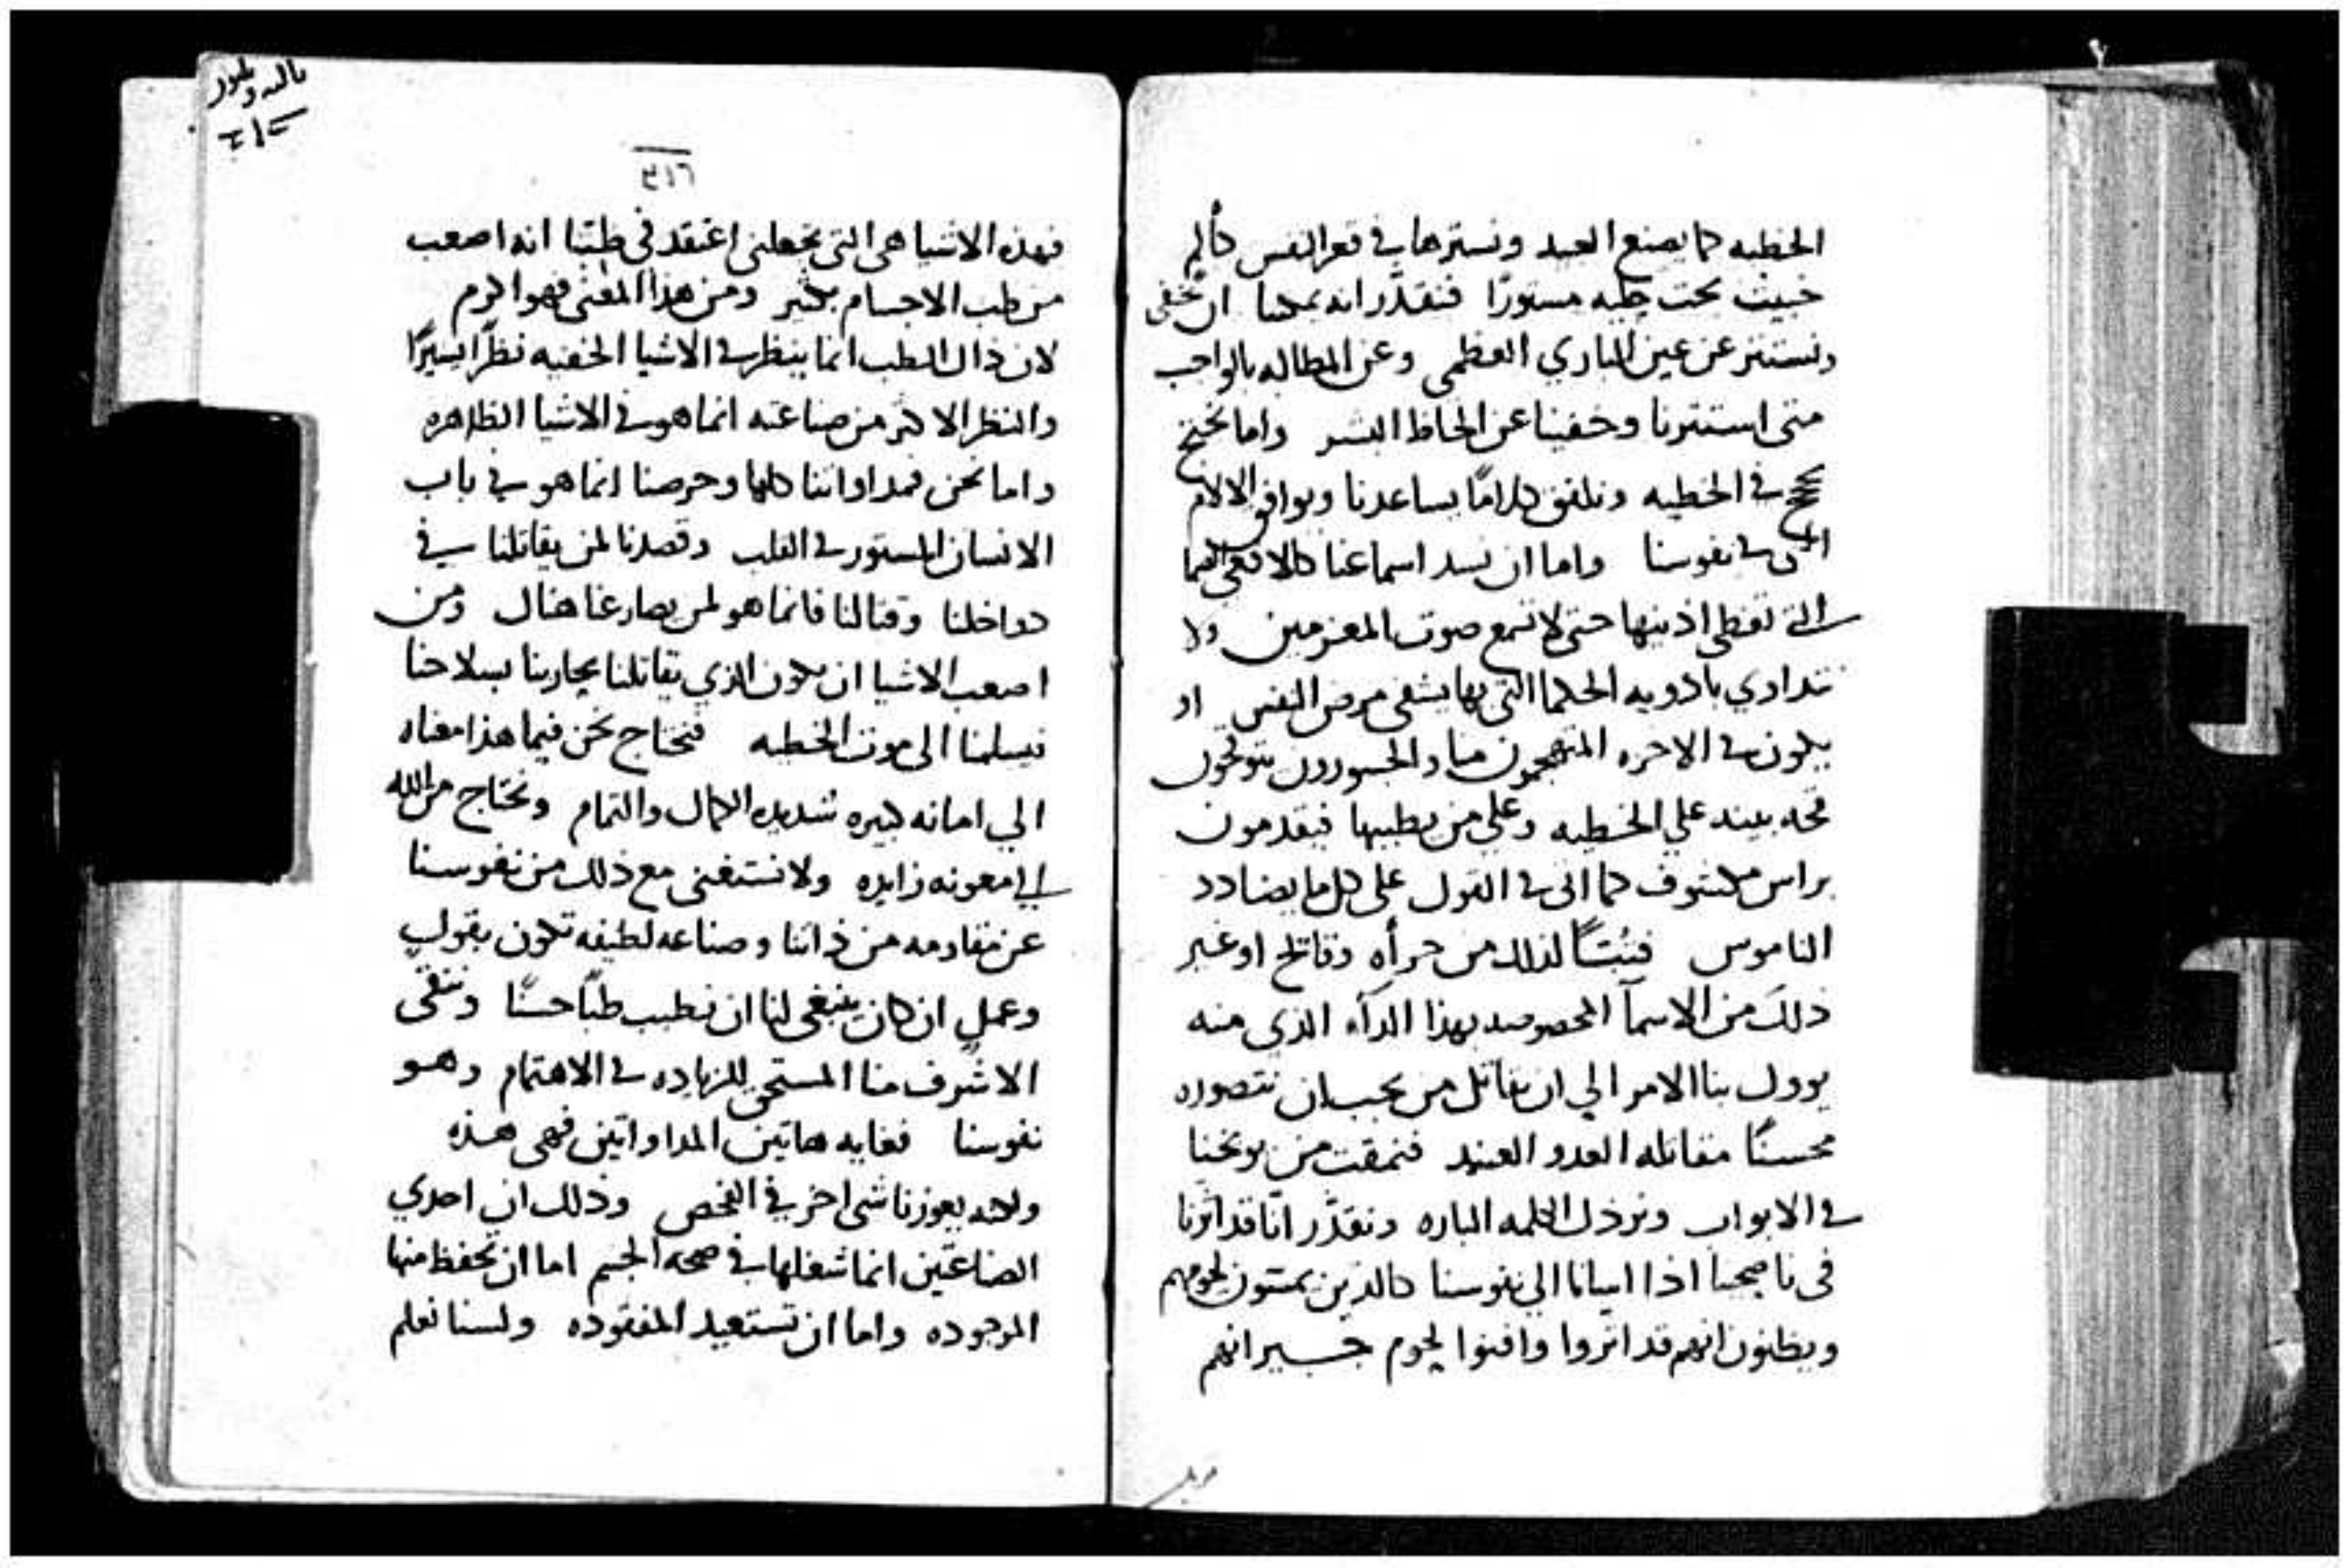 الخطيه كما يصنع العبد ونسترها في قعر النفس كألم
خبيث تحت جلبه مستورًا فنقدَّر انه يمكنا ان نخفى
ونستتر عن عين الباري العظمى وعن المطالبه بالواجب
متى استترنا وخفينا عن الحاظ البشر واما نحتج
حجج في الخطيه ونلفق كلامًا يساعدنا ويوافق الالام
التى في نفوسنا واما ان نسد اسماعنا كالافعى الصما
التي تغطى اذنيها حتى لا تسمع صوت المعزمين ولا
نتداوي بادويه الحكما التى بها يشفى مرض النفس او
يكون في الاخره المتهجمون منا والجسورون يتوقحون
قحه بينه علي الخطيه وعلي من يطببها فيقدمون
براس مكشوف كما اتى في القول على كل ما يضادد
الناموس من جرأه وقاتح او غير
ذلك من الاسمآ المخصوصه بهذا الدآء الذي منه
يوول بنا الامر الي ان نقاتل من يجب ان نتصوره
محسنًا مقاتله العدو العنيد فنمقت من يوبخنا
في الابواب ونرذل الكلمه الباره ونقدَّر انّا قد اثرنا
فى ناصحينا اذا اسانا الي نفوسنا كالذين يمشون لحومهم
ويظنون انهم قد اثروا وافنوا لحوم جيرانهم
٣١٦
فهذه الاشيا هى التى تجعلنى اعتقد فى طبّنا انه اصعب
من طب الاجسام بكثير ومن هذا المعنى فهو اكرم
لان ذاك الطب انما ينظر في الاشيا الخفيه نظرًا يسيرًا
والنظر الاكثر من صناعته انما هو في الاشيا الظاهره
واما نحن فمداواتنا كلها وحرصنا انما هو في باب
الانسان المستور في القلب وقصدنا لمن يقاتلنا في
دواخلنا وقتالنا فانما هو لمن يصارعنا هناك ومن
اصعب الاشيا ان يكون الذي يقاتلنا يحاربنا بسلاحنا
فيسلمنا الى موت الخطيه فنحتاج نحن فيما هذا معناه
الي امانه كبيره شديده الكمال والتمام ونحتاج من الله
الي معونه زايده ولا نستغنى مع ذلك من نفوسنا
عن مقاومه من ذاتنا وصناعه لطيفه تكون بقول
وعمل ان كان ينبغى لنا ان نطبب طبًّا حسنًا وننقى
الاشرف منا المستحق للزياده في الاهتمام وهو
نفوسنا فغايه هاتين المداواتين فهى هذه
ولانه يعوزنا شى اخر في الفحص وذلك ان احدي
الصناعتين انما شغلها في صحه الجسم اما ان تحفظ منها
الموجوده واما ان تستعيد المفقوده ولسنا نعلم